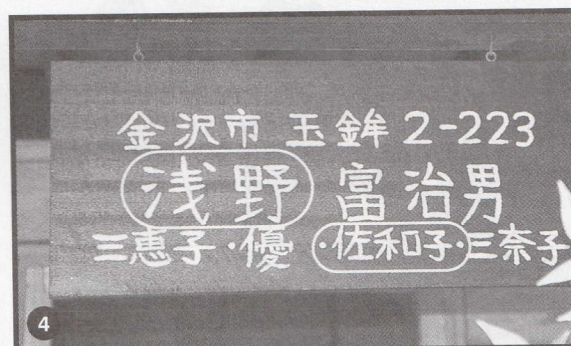 金沢市 玉鉾 2-223
浅野 富治男
三恵子・優・佐和子・三奈子
4